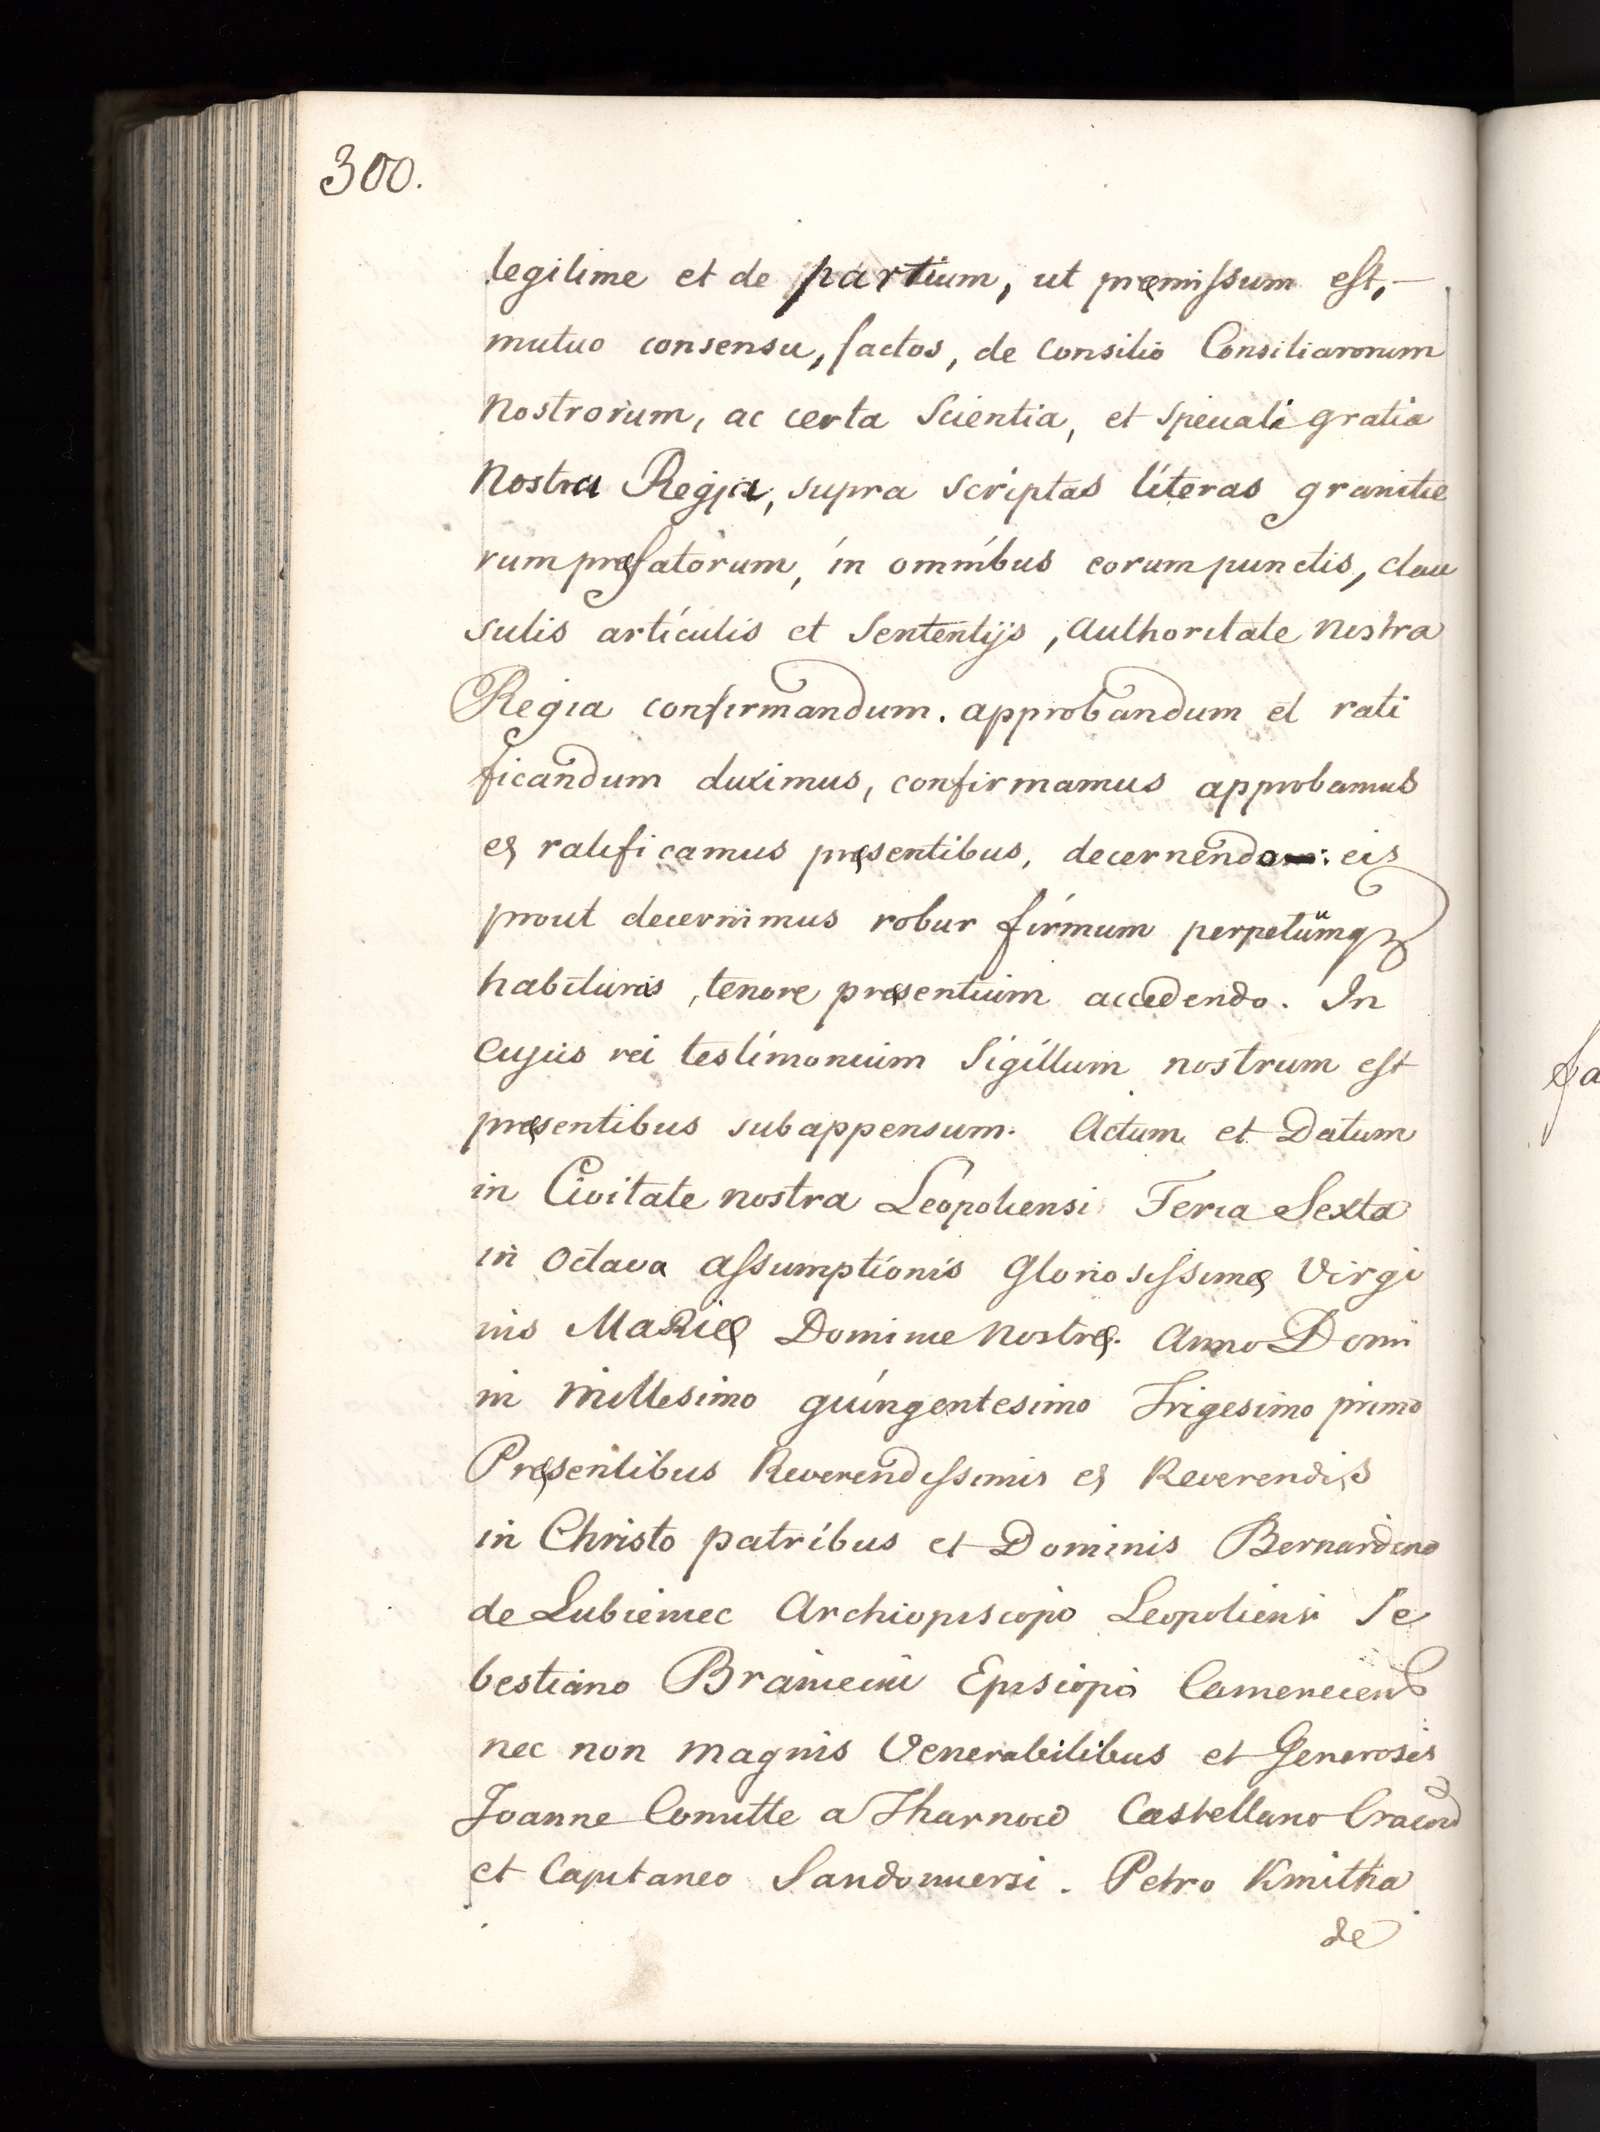 300.
legitime et de partium, ut pręmissum est,
mutuo consensu, factos, de Consilio Consiliarorum
Nostrorum, ac certa Scientia, et Speciali gratia
Nostra Regia, supra scriptas literas granitie
rum pręfatorum, in omnibus eorum punctis, clau
sulis articulis et Sententijs, Authoritate Nostra
Regia confirmandum. approbandum et rati
ficandum duximus, confirmamus approbamus
et ratificamus pręsentibus, decernendo eis
prout decernimus robur firmum perpetuumq3
habituris, tenore pręsentium accedendo. In
cujus rei testimonium Sigillum nostrum est
pręsentibus subappensum. Actum et Datum
in Civitate nostra Leopoliensi Feria Sexta
in Octava Assumptionis Gloriosissimę Virgi
nis MaRię Dominae Nostrę. Anno Domi
ni Millesimo quingentesimo Trigesimo primo
Pręsentibus Reverendissimis et Reverendis
in Christo patribus et Dominis Bernardino
de Lubieniec Archiopiscopo Leopoliensi Se
bestiano Episcopo Camenecens
nec non magnis Venerabilibus et Generosis
Joanne Comitte a Tharnow Castellano Cracov
et Capitaneo Sandomiersi. Petro Kmitha
de
fa